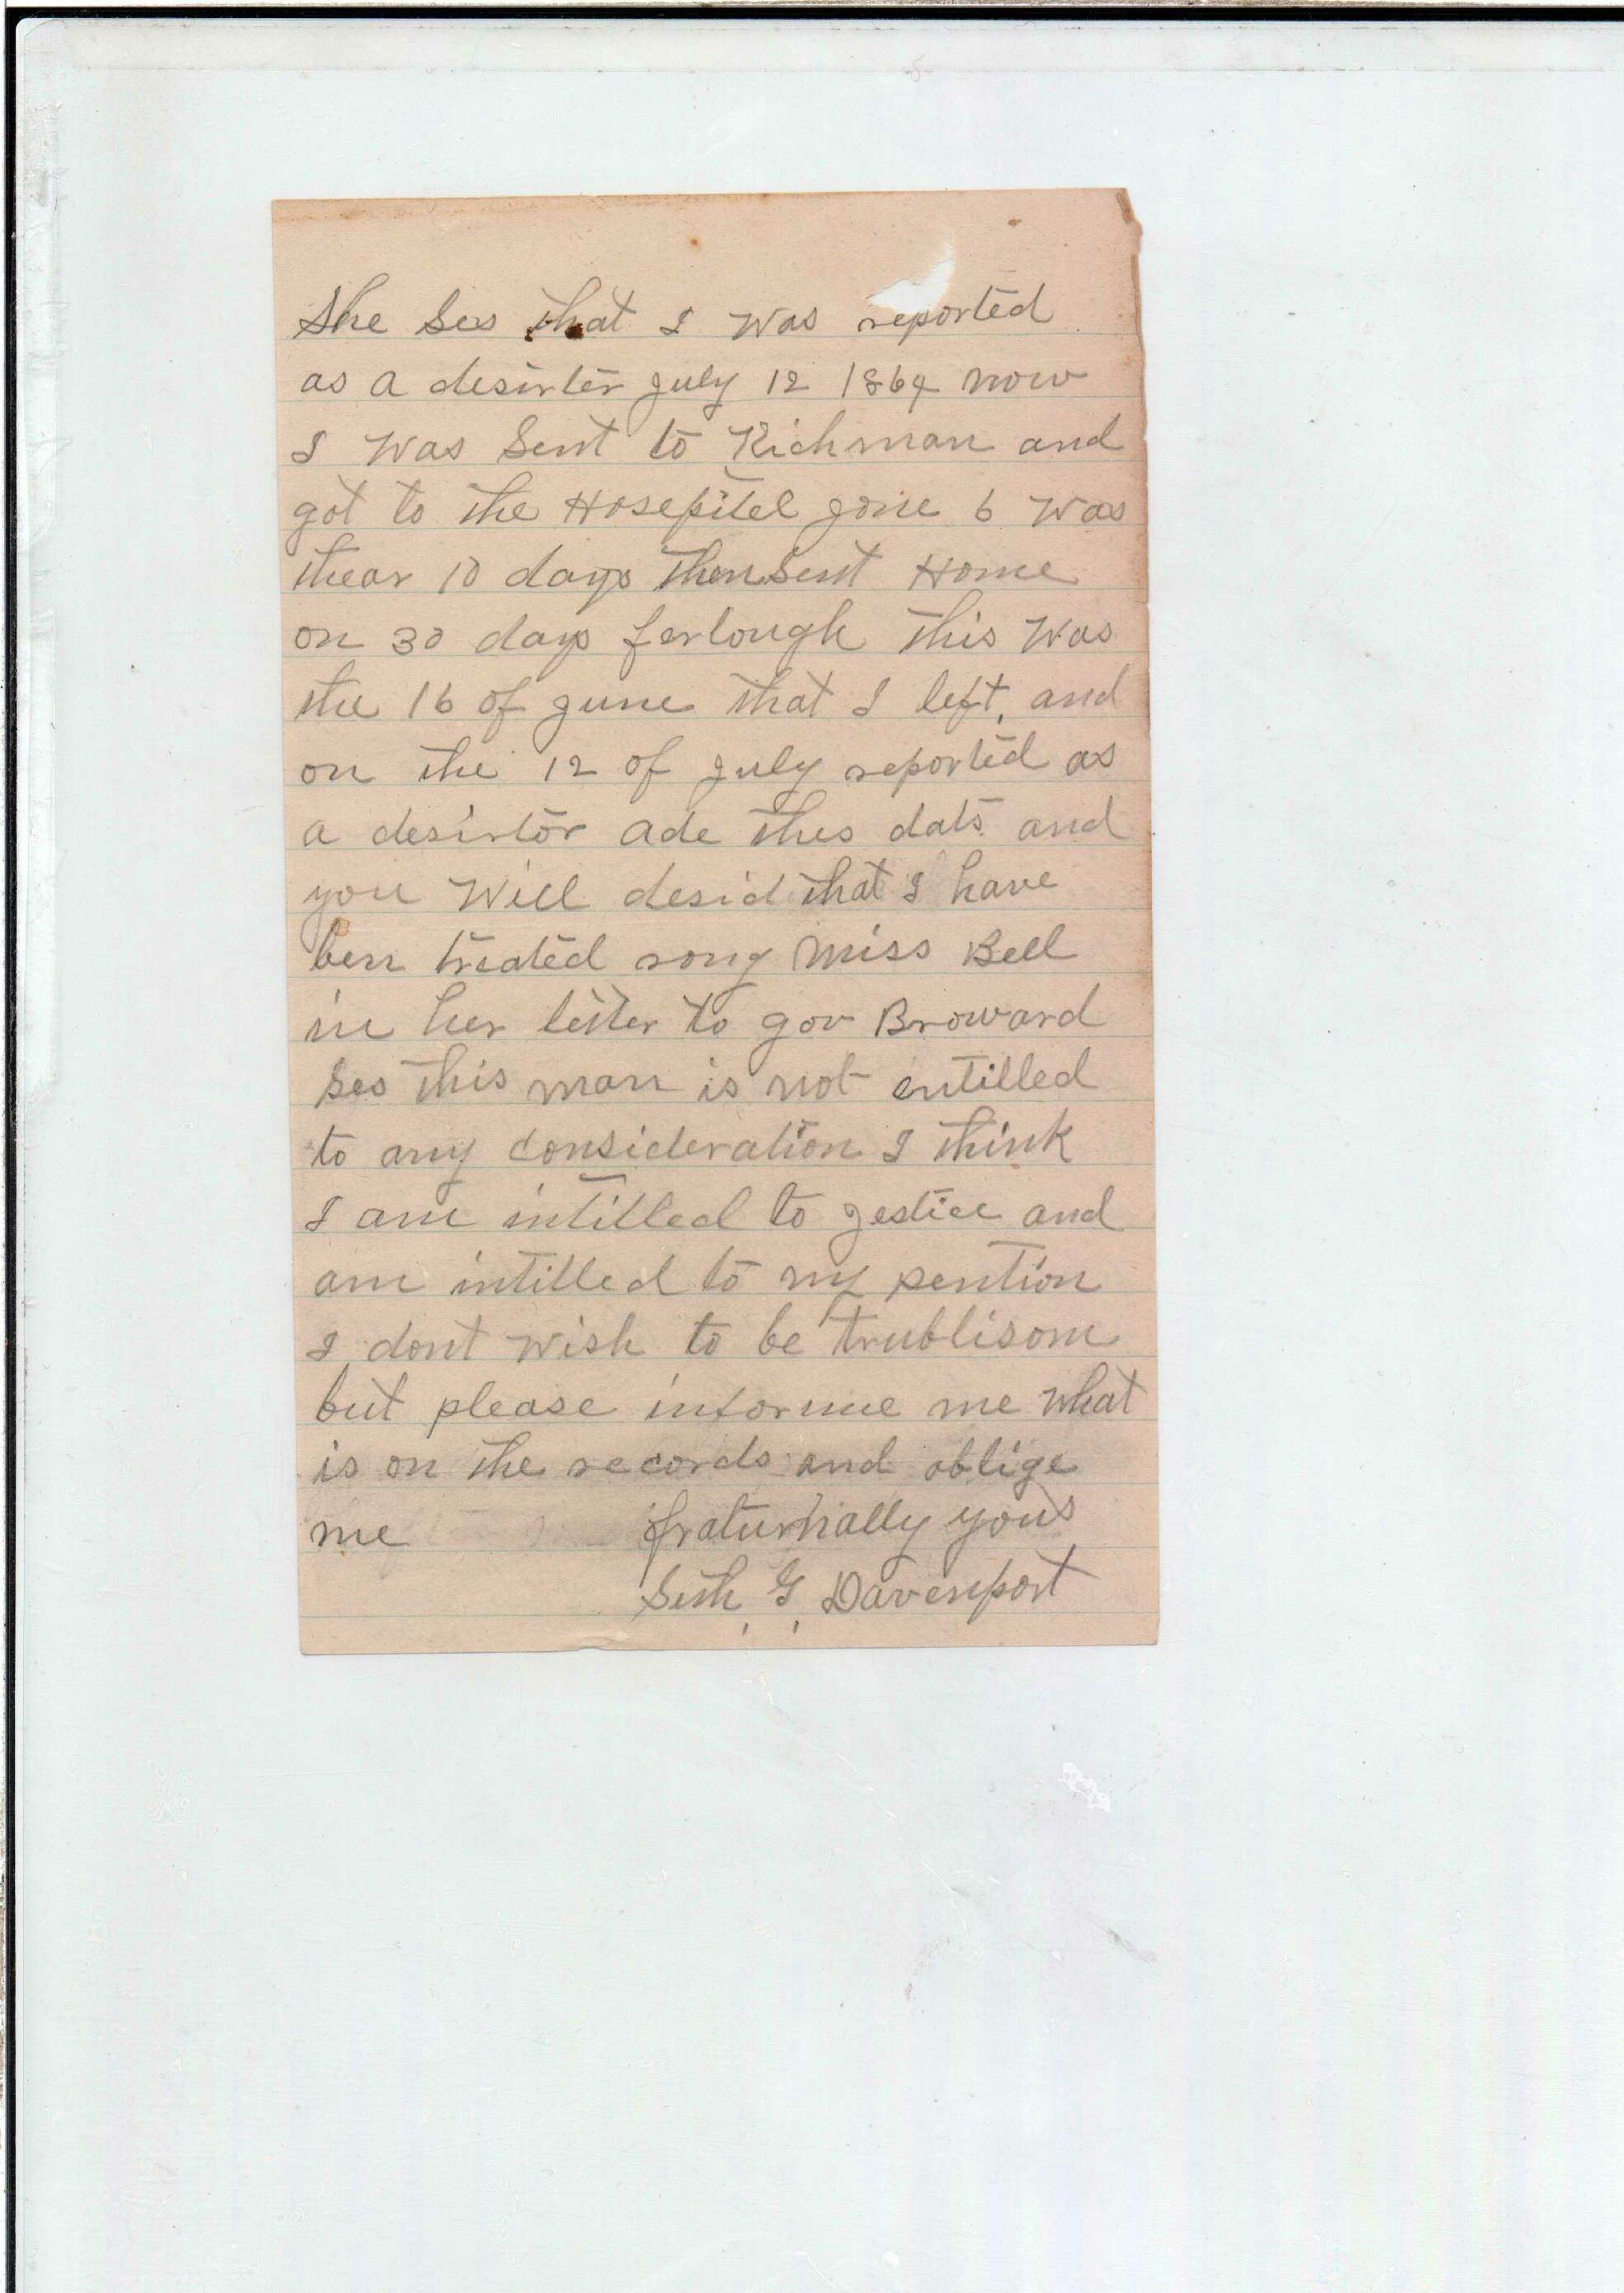 She Ses that I was reported
as a desirter july 12 1864 now
I Was Sent to Richman and
got to the Hosepitel june 6 Was
thear 10 days then Sent Home
on 30 days ferlough this Was
the 16 of june that I left, and
on the 12 of july reported as
a desirtor ade thes dats and
you Will desid that I have
ben treated rong Miss Bell
in her letter to gov Broward
Ses this man is not entilled
to any consideration I think
I am intilled to jestice and
am intilled to my pention
I dont wish to be trublisom
but please informe me what
is on the records and oblige
me fraturnally yours
Seth, G, Davenport